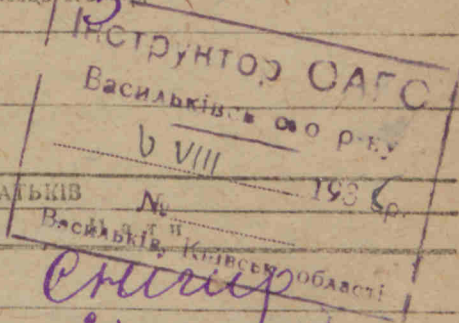 Інструктор ОАГС
Васильківського р-ну
6 VIII 1936р.
АТЬКІВ
№
Васильків, Київської області
Снігир